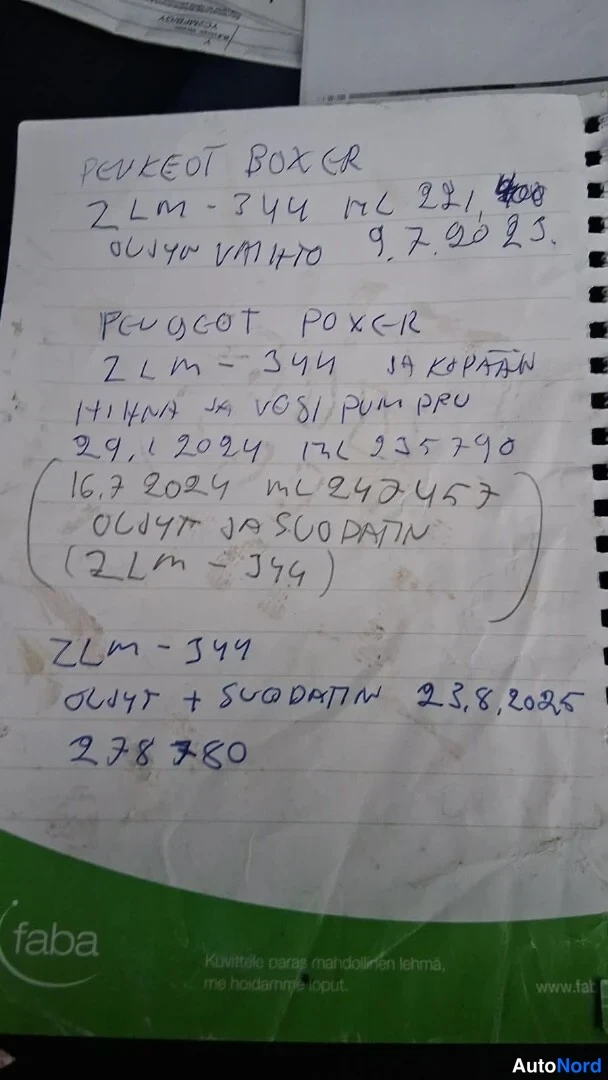 PEUKEOT BOXER
ZLM-344 ML 221,
ÖLJYN VAIHTO 9.7.2023.
PEUGEOT POXER
ZLM-344 JAKOPÄÄN
HIHNA JA VESI PUMPPU
29.1 2024 ML 235790
(16.7 2024 ML 247457
ÖLJYT JA SUODATIN
(ZLM-344))
ZLM-344
ÖLJYT + SUODATIN 23.8.2025
278 780
faba
Kuvittele paras mahdollinen lehmä,
me hoidamme loput.
www.fab
AutoNord